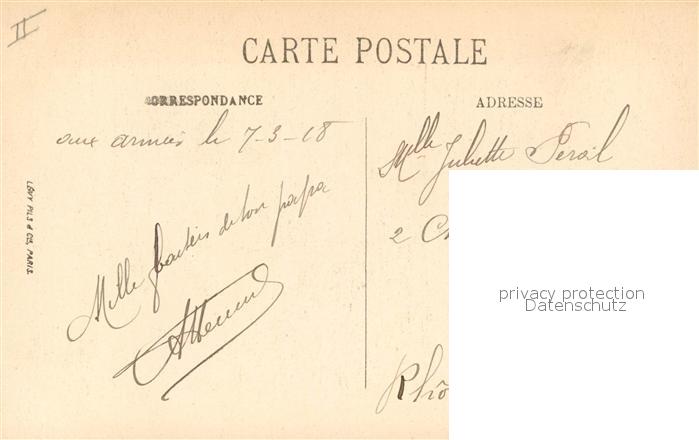 II
CARTE POSTALE
CORRESPONDANCE
ADRESSE
aux armées le 7-3-18
Mlle Juliette
2
Mille baisers de ton papa
LÉVY FILS & Cie, PARIS.
privacy protection
Datenschutz
Rhô